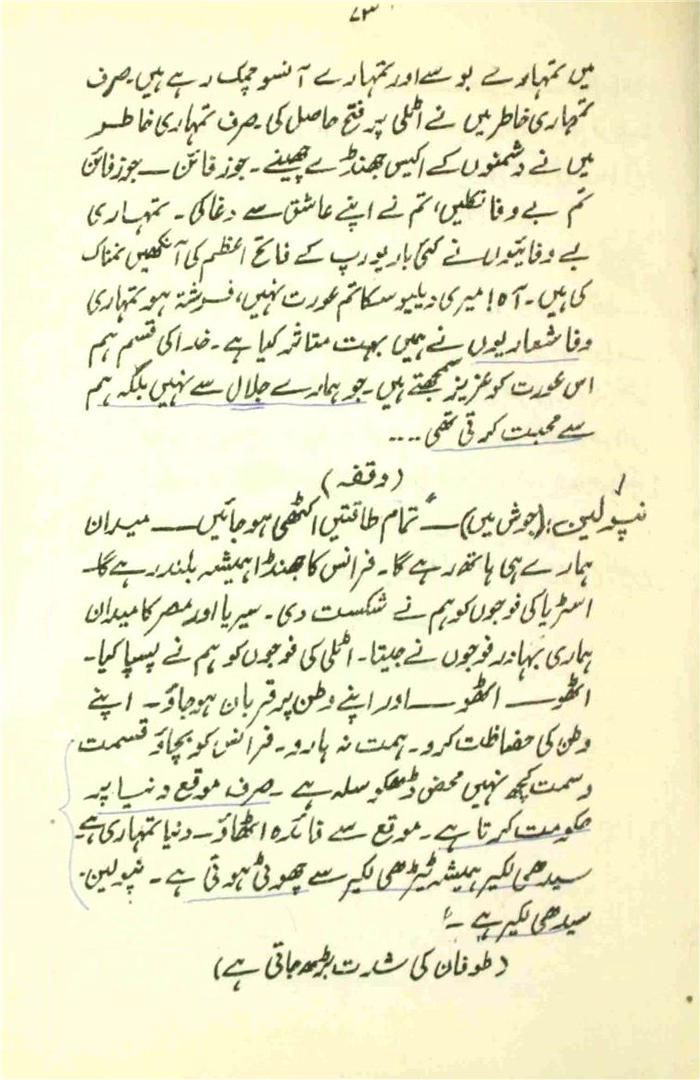 ۷۳
میں تمہارے بوسے اور تمہارے آنسو چمک رہے ہیں۔ صرف
تمہاری خاطر میں نے اٹلی پر فتح حاصل کی۔ صرف تمہاری خاطر
میں نے دشمنوں کے اکیس جھنڈے چھینے۔ جوزفائن — جوزفائن
تم بے وفا نکلیں، تم نے اپنے عاشق سے دغا کی۔ تمہاری
بے وفائیوں نے کئی بار یورپ کے فاتح اعظم کی آنکھیں نمناک
کی ہیں۔ آہ! میری ویلیوسکا تم عورت نہیں، فرشتہ ہو تمہاری
وفا شعاریوں نے ہمیں بہت متاثر کیا ہے۔ خدا کی قسم ہم
اس عورت کو عزیز سمجھتے ہیں۔ جو ہمارے جلال سے نہیں بلکہ ہم
سے محبت کرتی تھی ....
(وقفہ)
نپولین:(جوش میں) — "تمام طاقتیں اکٹھی ہو جائیں — میدان
ہمارے ہی ہاتھ رہے گا۔ فرانس کا جھنڈا ہمیشہ بلند رہے گا۔
اسٹریا کی فوجوں کو ہم نے شکست دی۔ سیریا اور مصر کا میدان
ہماری بہادر فوجوں نے جیتا۔ اٹلی کی فوجوں کو ہم نے پسپا کیا۔
اٹھو — اٹھو — اور اپنے وطن پر قربان ہو جاؤ۔ اپنے
وطن کی حفاظت کرو۔ ہمت نہ ہارو۔ فرانس کو بچاؤ قسمت
وسمت کچھ نہیں محض ڈھکوسلہ ہے۔ صرف موقع دنیا پر
حکومت کرتا ہے۔ موقع سے فائدہ اٹھاؤ۔ دنیا تمہاری ہے۔
سیدھی لکیر ہمیشہ ٹیڑھی لکیر سے چھوٹی ہوتی ہے۔ نپولین۔
سیدھی لکیر ہے۔"
(طوفان کی شدت بڑھ جاتی ہے)